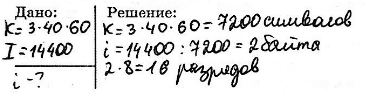 Дано:
K = 3·40·60
I = 14400
i - ?
Решение:
K = 3·40·60 = 7200 символов
i = 14400 : 7200 = 2 байта
2·8 = 16 разрядов